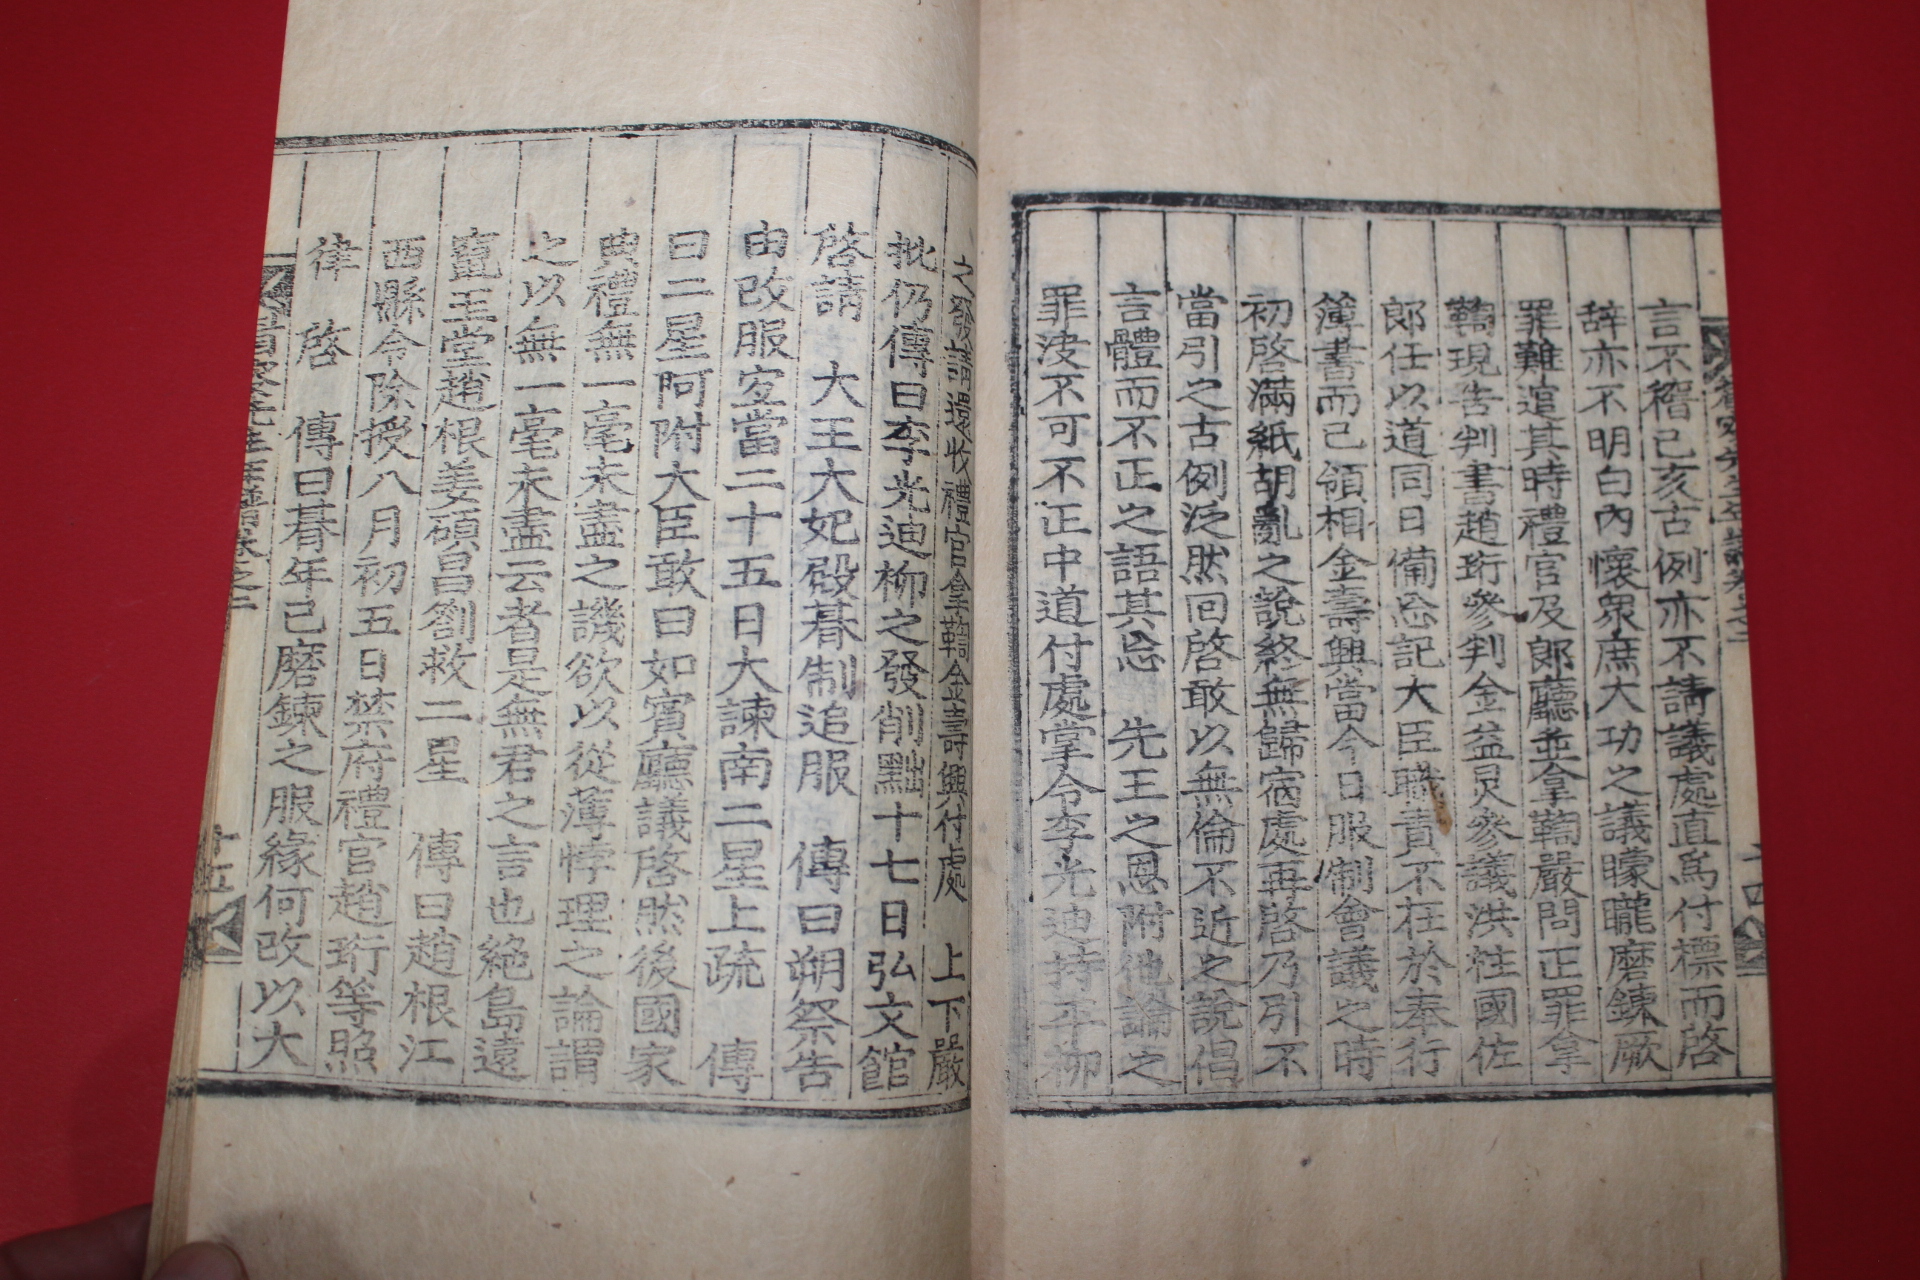 言不稽己亥古例亦不請議處直爲付標而啓
辞亦不明白內懷衆庶大功之議矇矓磨鍊厥
罪難逭其時禮官及郞廳並拿鞫嚴問正罪拿
鞫現告判書趙珩參判金益炅參議洪柱國佐
郞任以道同日備忘記大臣職責不在於奉行
簿書而已領相金壽興當今日服制會議之時
初啓滿紙胡亂之說終無歸宿處再啓乃引不
當引之古例泛然回啓敢以無倫不近之說倡
言體而不正之語其忘 先王之恩附他論之
罪決不可不正中道付處掌令李光迪持平柳
之發請還收禮官拿鞫金壽興付處 上下嚴
批仍傳曰李光迪柳之發削黜十七日弘文館
啓請 大王大妃殿朞制追服 傳曰朔祭告
由改服宜當二十五日大諫南二星上疏 傳
曰二星阿附大臣敢曰如賓廳議啓然後國家
典禮無一毫未盡之譏欲以從薄悖理之論謂
之以無一毫未盡云者是無君之言也絶島遠
竄玉堂趙根姜碩昌劄救二星 傳曰趙根江
西縣令除授八月初五日禁府禮官趙珩等照
律 啓 傳曰朞年已磨鍊之服緣何改以大